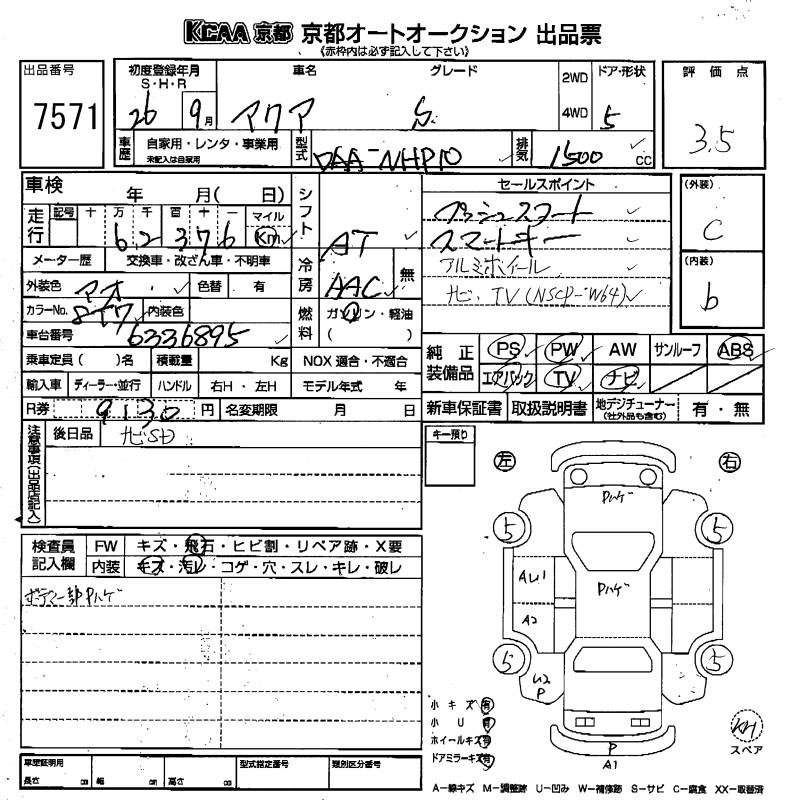 KCAA 京都 京都オートオークション 出品票
《赤枠内は必ず記入して下さい》
出品番号 初度登録年月 S・H・R 車名 グレード 2WD 4WD ドア・形状 評価点
7571 26 9月 アクア S 5 3.5
車歴 自家用・レンタ・事業用 未記入は自家用 型式 DAA-NHP10 排気 1500 CC
車検 年 月( 日) シフト AT セールスポイント (外装) C
走行 記号 十 万 千 百 十 一 マイル Km プッシュスタート
6 2 3 7 6 スマートキー
メーター歴 交換車・改ざん車・不明車 冷房 AAC 無 アルミホイール (内装) b
外装色 アオ 色替 有 ナビ・TV(NSCP-W64)
カラーNo. 8T7 内装色 燃料 ガソリン・軽油 ( )
車台番号 6336895
乗車定員( )名 積載量 Kg NOX適合・不適合 純正装備品 PS PW AW サンルーフ ABS
輸入車 ディーラー・並行 ハンドル 右H・左H モデル年式 年 エアバック TV ナビ
R券 9130 円 名変期限 月 日 新車保証書 取扱説明書 地デジチューナー (社外品も含む) 有・無
注意事項(出品店記入) 後日品 ナビSD キー預り
左 右
検査員記入欄 FW キズ・飛石・ヒビ割・リペア跡・X要
内装 キズ・汚レ・コゲ・穴・スレ・キレ・破レ
ボデー一部Pハゲ
Pハゲ
5 5
AU1 Pハゲ
A2
5 5
U2
P
小キズ 有
小U 有
ホイールキズ 有
ドアミラーキズ 有
P
A1
スペア
車歴証明用 長さ cm 幅 cm 高さ cm 型式指定番号 類別区分番号
A－線キズ M－調整跡 U－凹み W－補修跡 S－サビ C－腐食 XX－取替済